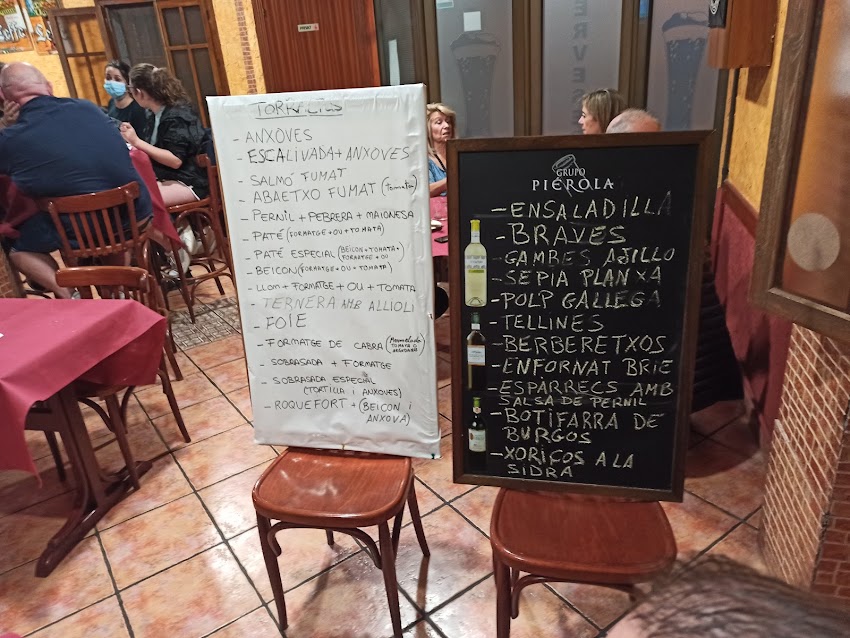 TORRADES
- ANXOVES
- ESCALIVADA + ANXOVES
- SALMÓ FUMAT
- ABAETXO FUMAT (Tomata)
- PERNIL + PEBRERA + MAIONESA
- PATÉ (FORMATGE + OU + TOMATA)
- PATÉ ESPECIAL (BEICON + TOMATA +
FORMATGE + OU)
- BEICON (FORMATGE + OU + TOMATA)
- LLOM + FORMATGE + OU + TOMATA
- TERNERA AMB ALLIOLI
- FOIE
- FORMATGE DE CABRA (Mermelada
TOMATA O
- SOBRASADA + FORMATGE
- SOBRASADA ESPECIAL
(TORTILLA i ANXOVES)
- ROQUEFORT + (BEICON i
ANXOVA)
GRUPO
PIÉROLA
- ENSALADILLA
- BRAVES
- GAMBES AJILLO
- SEPIA PLANXA
- POLP GALLEGA
- TELLINES
- BERBERETXOS
- ENFORNAT BRIE
- ESPARRECS AMB
SALSA DE PERNIL
- BOTIFARRA DE
BURGOS
- XORIÇOS A LA
SIDRA